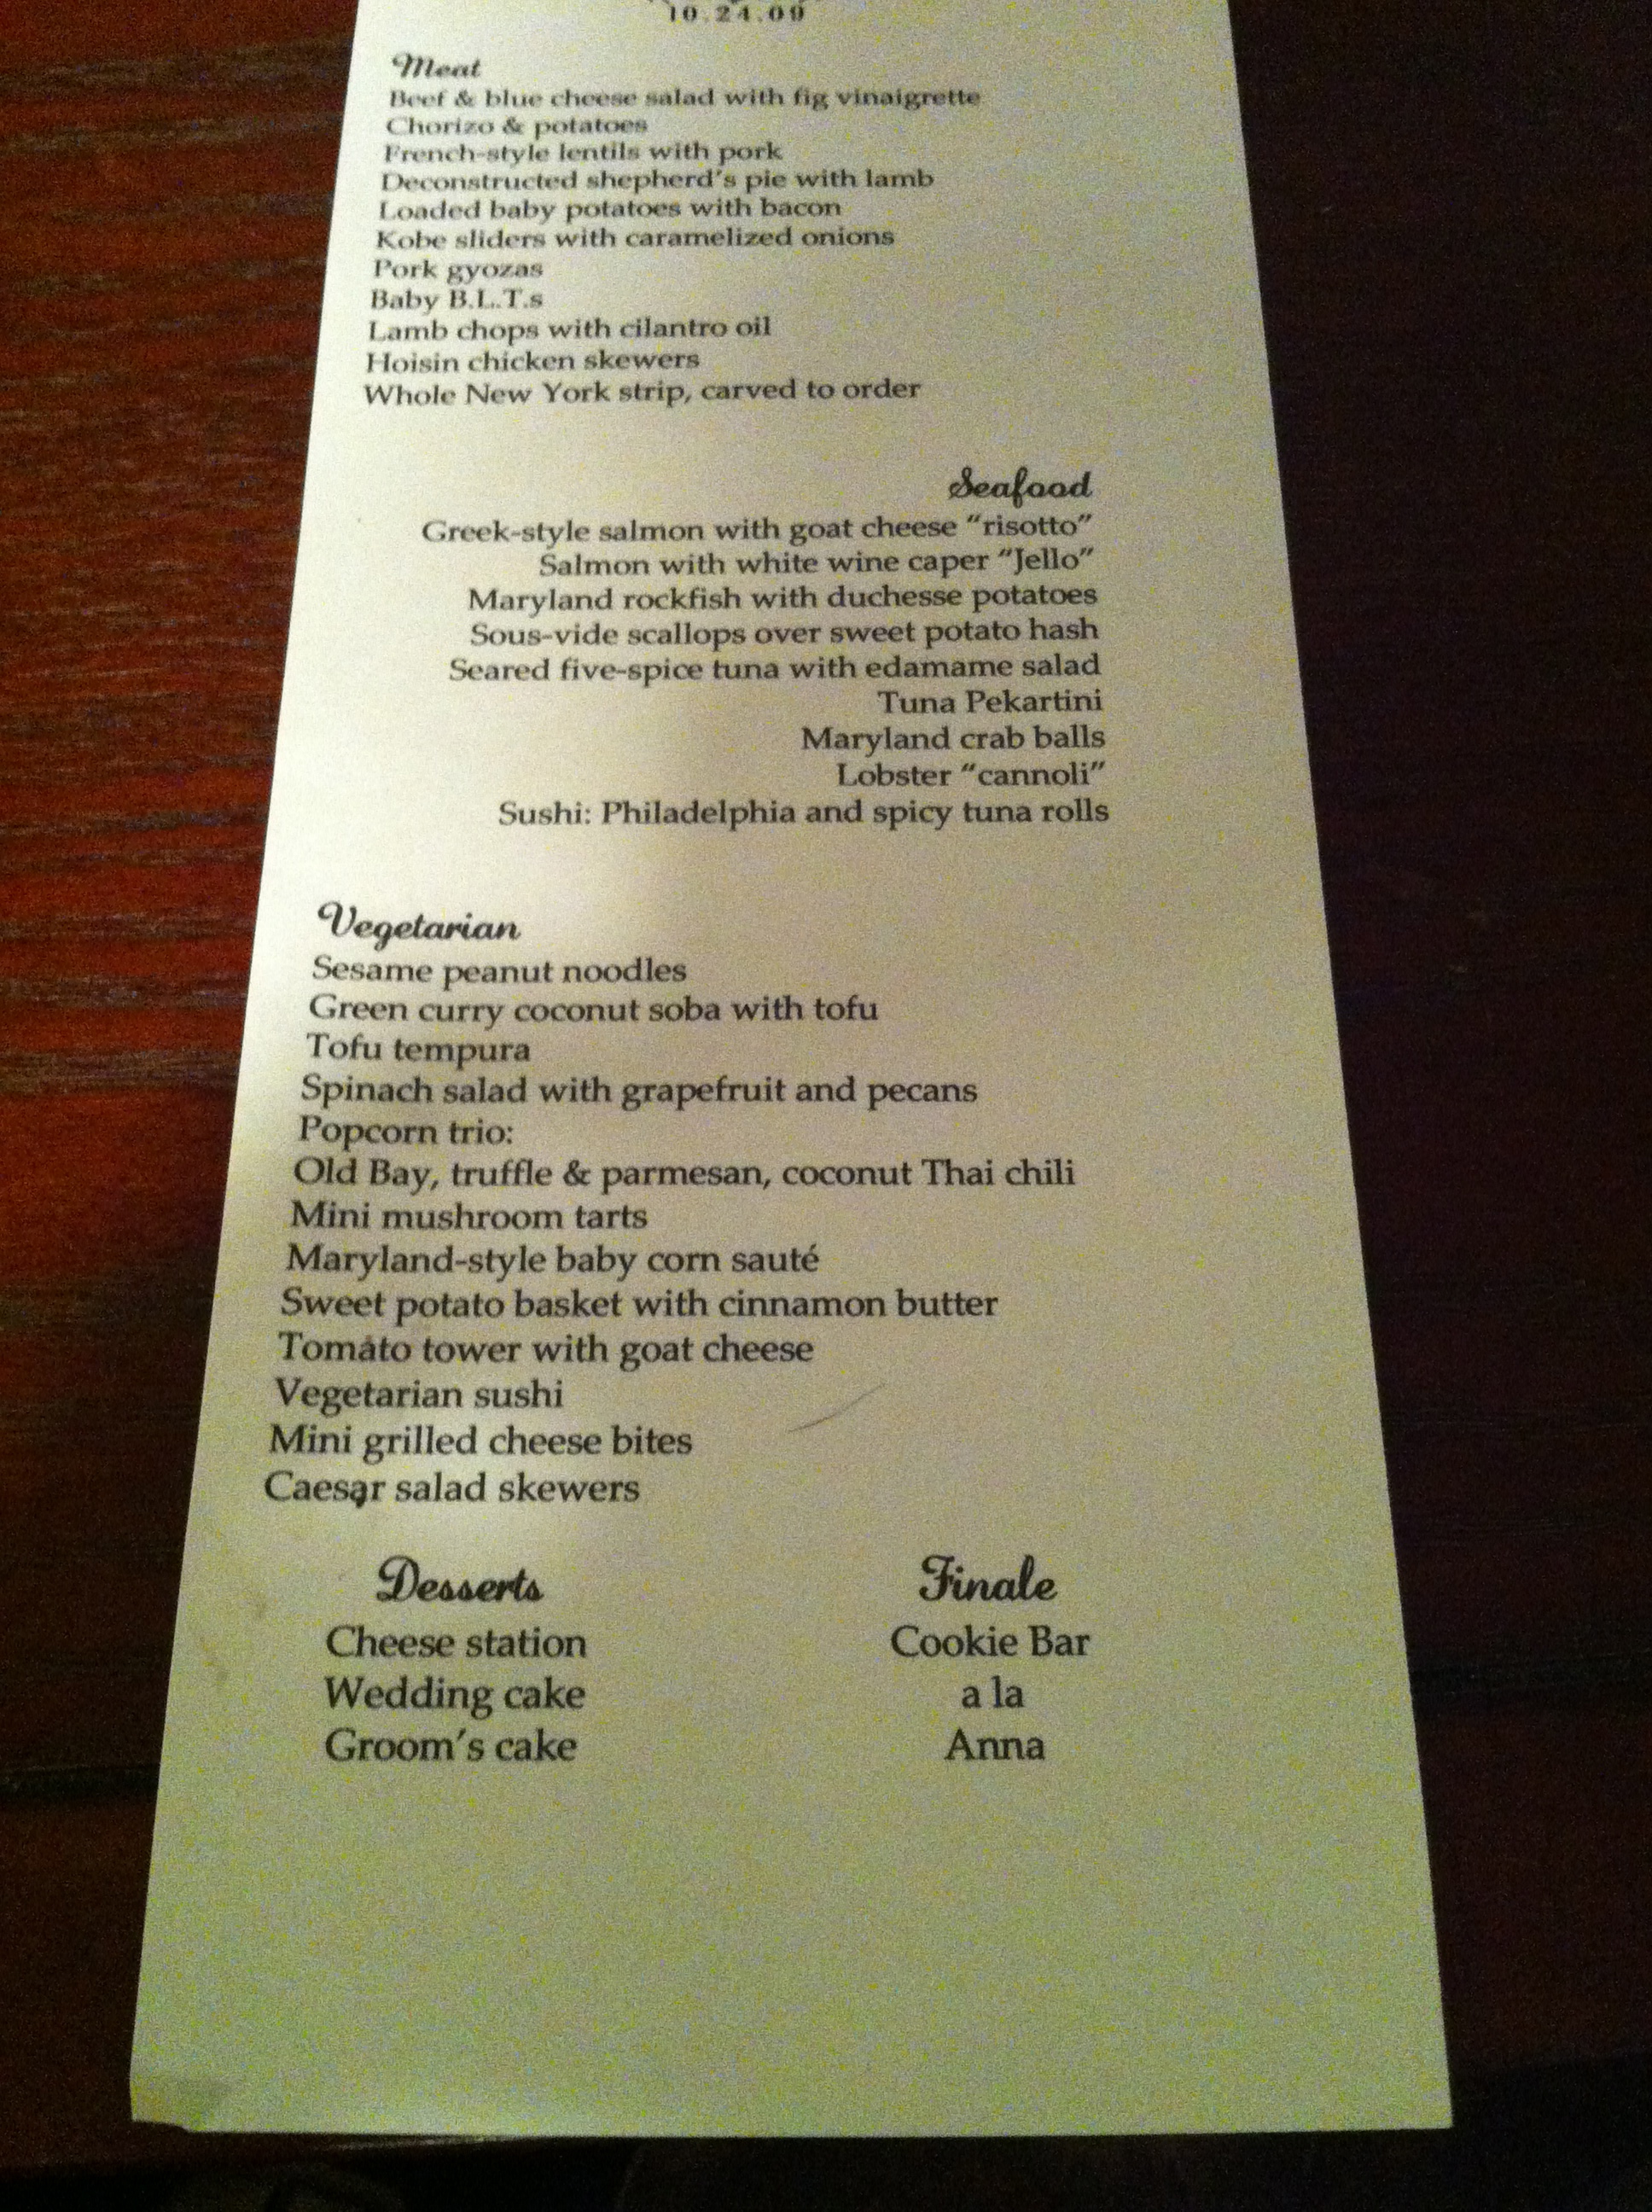 10.24.09
Meat
Beef & blue cheese salad with fig vinaigrette
Chorizo & potatoes
French-style lentils with pork
Deconstructed shepherd's pie with lamb
Loaded baby potatoes with bacon
Kobe sliders with caramelized onions
Pork gyozas
Baby B.L.T.s
Lamb chops with cilantro oil
Hoisin chicken skewers
Whole New York strip, carved to order
Seafood
Greek-style salmon with goat cheese “risotto”
Salmon with white wine caper “Jello”
Maryland rockfish with duchesse potatoes
Sous-vide scallops over sweet potato hash
Seared five-spice tuna with edamame salad
Tuna Pekartini
Maryland crab balls
Lobster “cannoli”
Sushi: Philadelphia and spicy tuna rolls
Vegetarian
Sesame peanut noodles
Green curry coconut soba with tofu
Tofu tempura
Spinach salad with grapefruit and pecans
Popcorn trio:
Old Bay, truffle & parmesan, coconut Thai chili
Mini mushroom tarts
Maryland-style baby corn sauté
Sweet potato basket with cinnamon butter
Tomato tower with goat cheese
Vegetarian sushi
Mini grilled cheese bites
Caesar salad skewers
Desserts
Cheese station
Wedding cake
Groom's cake
Finale
Cookie Bar
a la
Anna